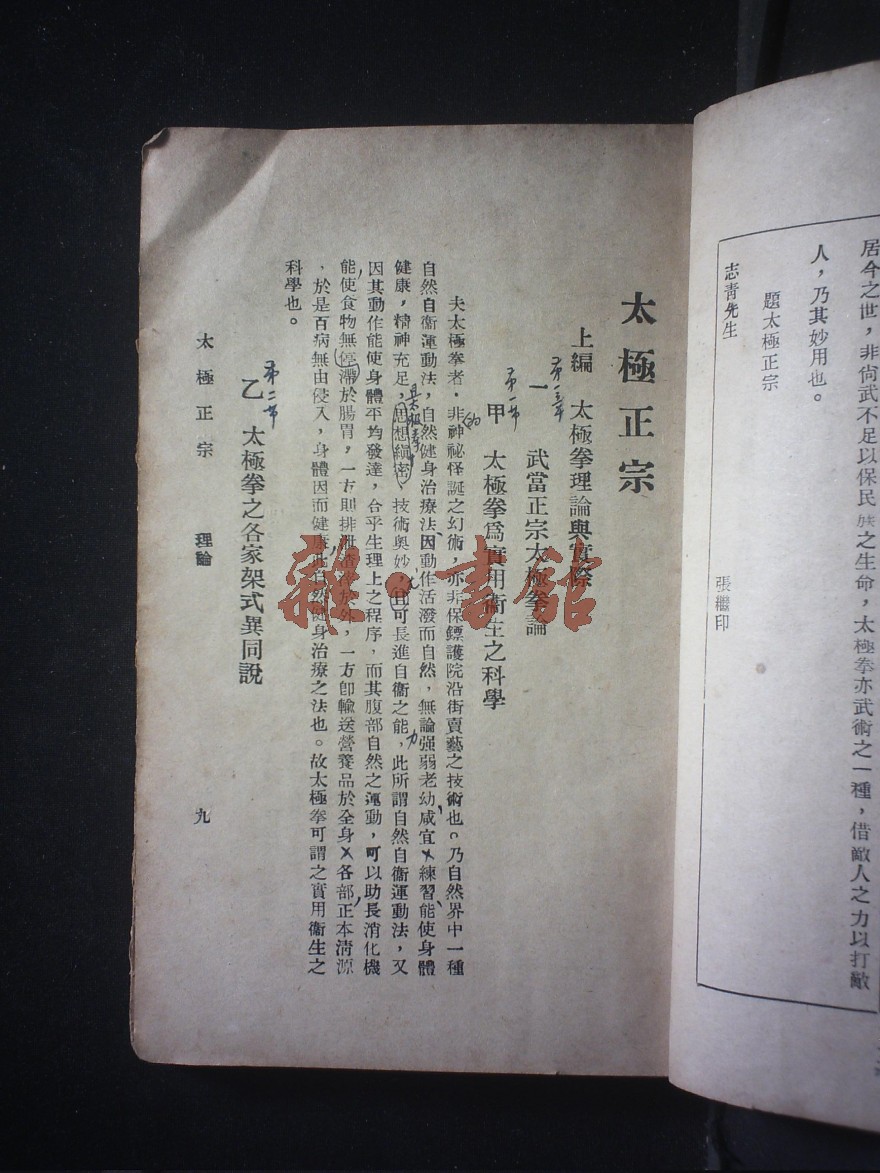 居今之世，非尙武不足以保民族之生命，太極拳亦武術之一種，借敵人之力以打敵
人，乃其妙用也。
題太極正宗
志靑先生
張繼印
太極正宗
上編　太極拳理論與實際
第一章
一　武當正宗太極拳論
第一節
甲　太極拳爲實用衞生之科學
夫太極拳者，非神祕怪誕之幻術，亦非保鏢護院沿街賣藝之技術也。乃自然界中一種
的
自然自衞運動法，自然健身治療法，因動作活潑而自然，無論强弱老幼，咸宜練習，能使身體
健康，精神充足，思想縝密，技術奧妙，尙可長進自衞之能，此所謂自然自衞運動法，又
力
因其動作能使身體平均發達，合乎生理上之程序，而其腹部自然之運動，可以助長消化機
能，使食物無停滯於腸胃，一方則排於外，一方卽輸送營養品於全身各部，正本淸源
，於是百病無由侵入，身體因而健康，此自然健身治療之法也。故太極拳可謂之實用衞生之
科學也。
第二節
乙　太極拳之各家架式異同說
太極正宗　理論　九
雜·書館